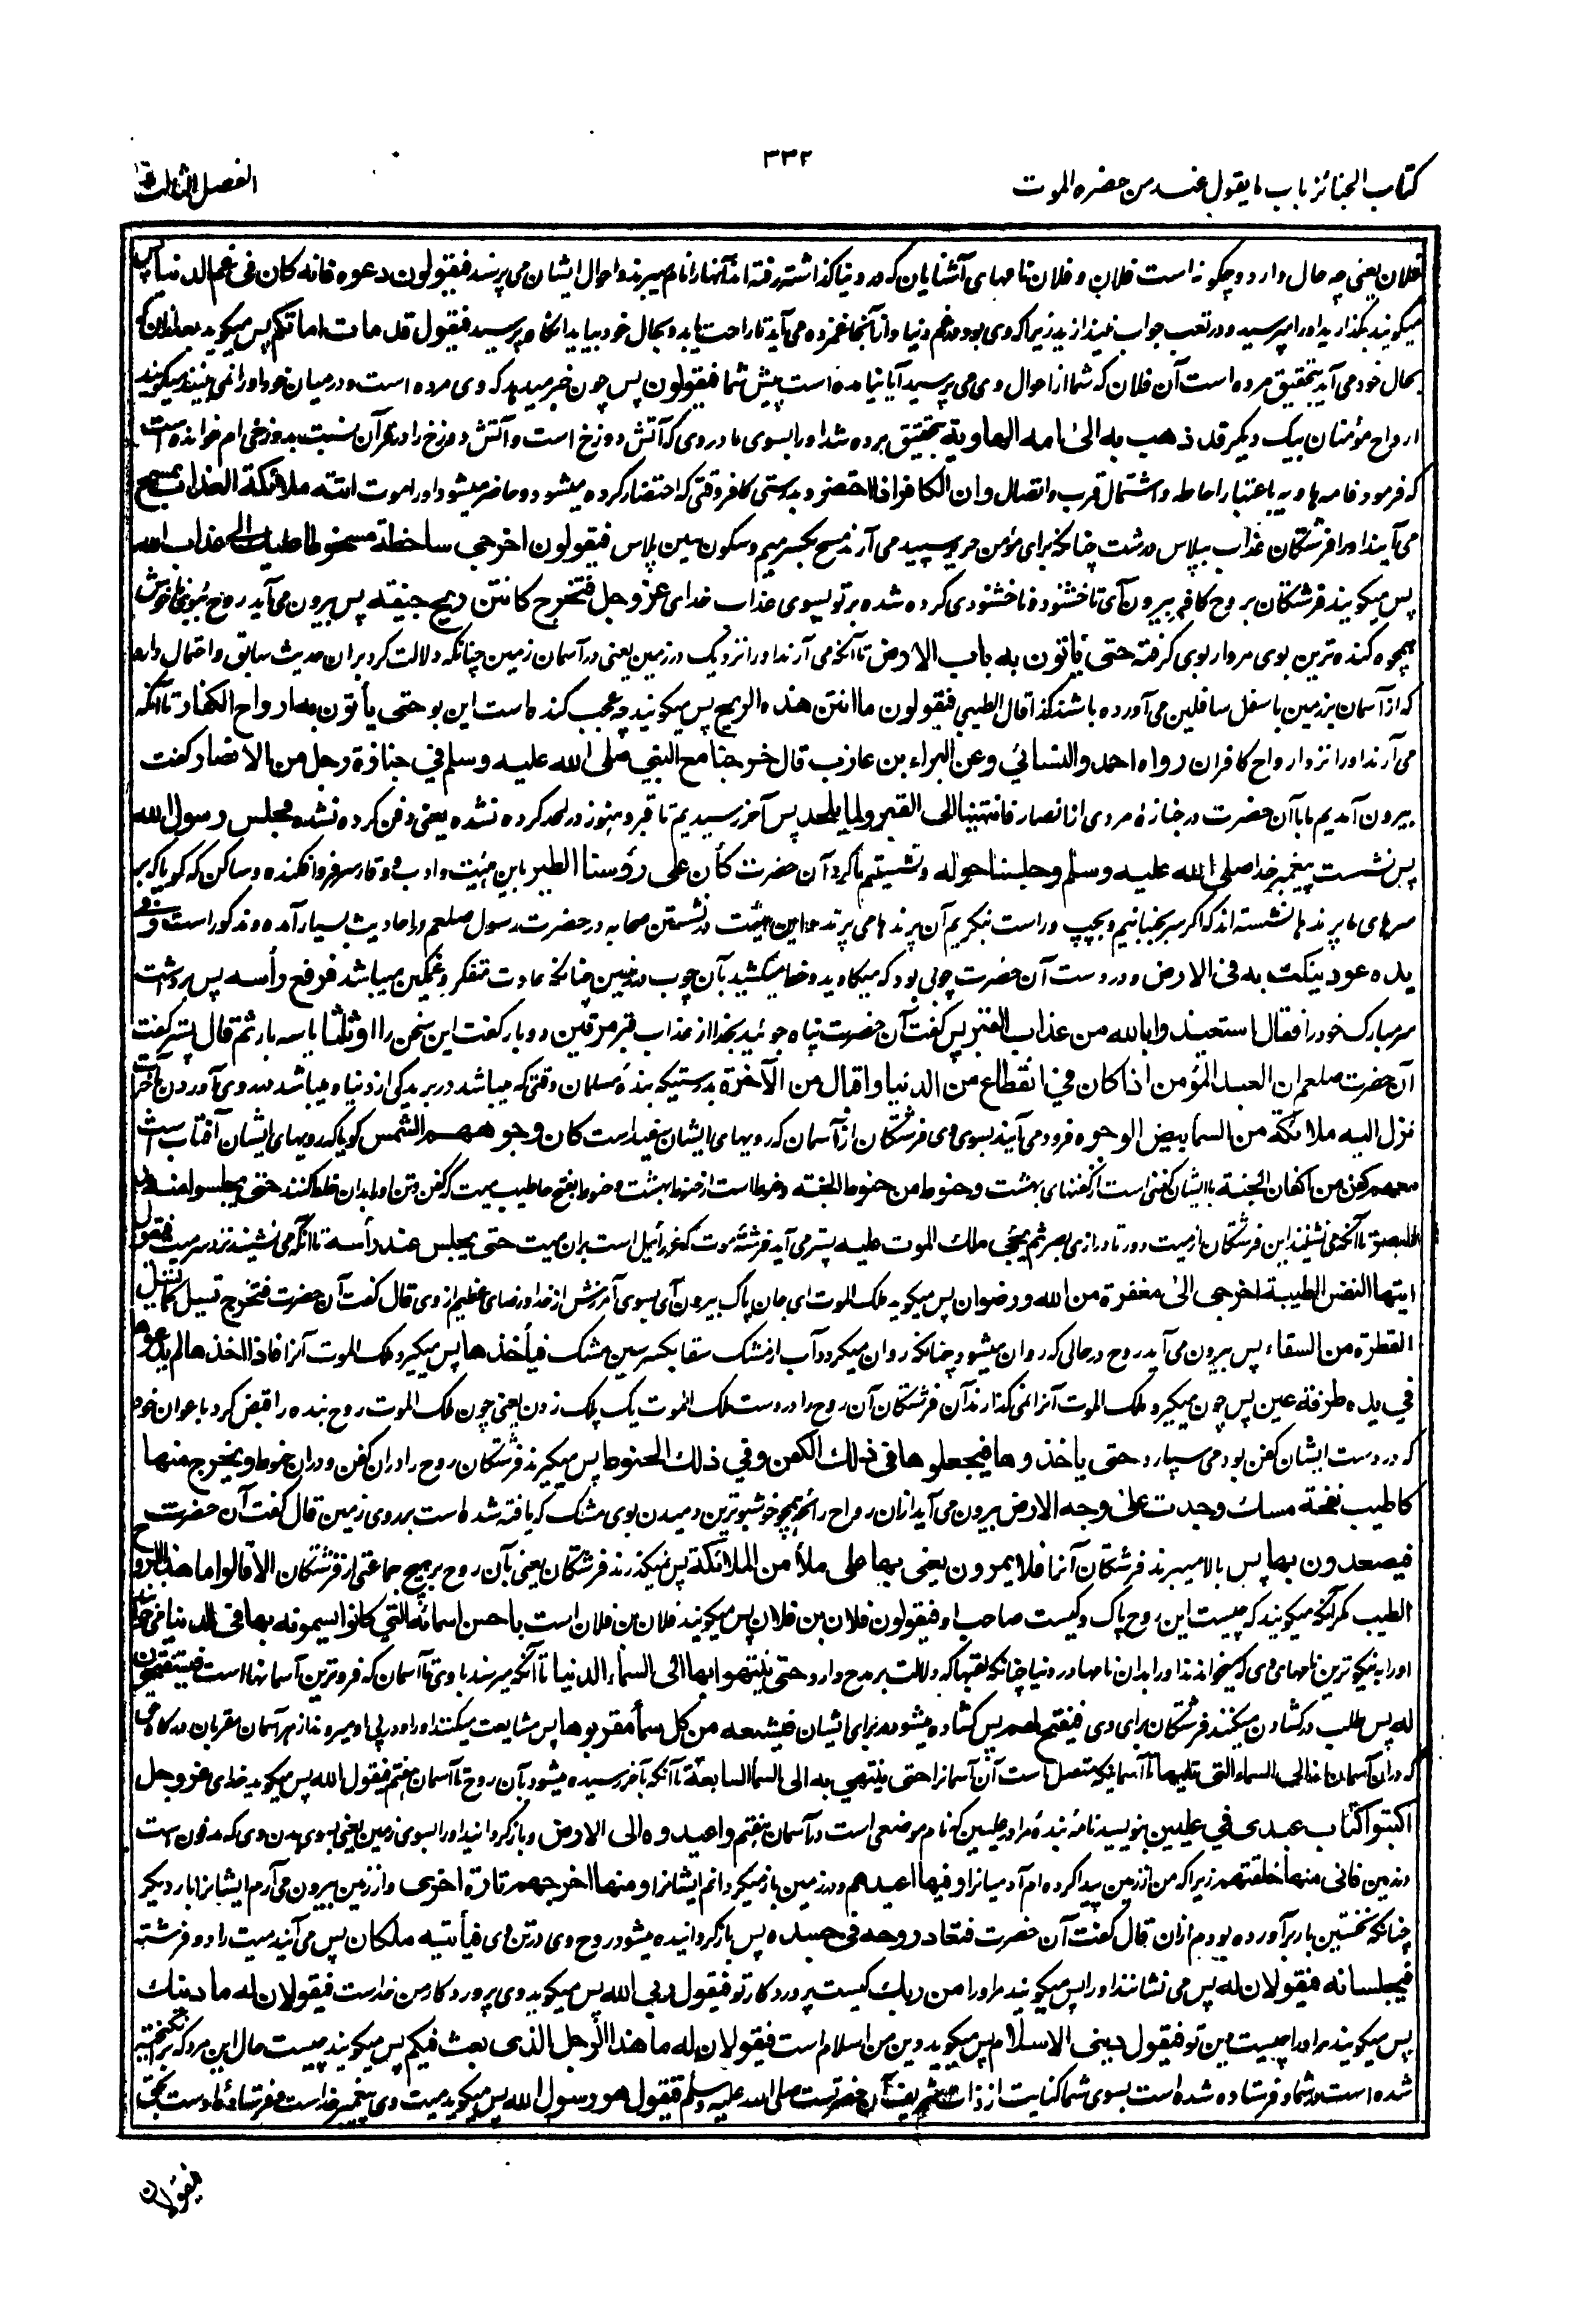 ۳۳۲
کتاب الجنائز باب ما یقول عند من حضره الموت
الفصل الثالث
فلان یعنی چه حال دارد و چگونه است فلان و فلان نامهای آشنایان که در دنیا گذاشته رفته اند آنها را نام میبرند و احوال ایشان می پرسند فیقولون دعوه فانه کان فی غم الدنیا پس
میگویند بگذارید او را مپرسید و در تعب جواب میندازید زیرا که وی بود در غم دنیا و از آنجا غمزده می آید تا راحت یابد و بحال خود بیاید انگاه بپرسید فیقول قد مات اما اتاکم پس میگوید بعد ازان که
بحال خود می آید بتحقیق مرده است آن فلان که شما از احوال وی می پرسید آیا نیامده است پیش شما فیقولون پس چون خبر میدهد که وی مرده است و در میان خود او را نمی بینند میگویند
ارواح مؤمنان بیک دیگر قد ذهب به الی امه الهاویة بتحقیق برده شد او را بسوی مادر وی که آتش دوزخ است و آتش دوزخ را در قرآن نسبت بدوزخی ام خوانده است
که فرمود فامه هاویه باعتبار احاطه و اشتمال قرب و اتصال وان الکافر اذا احتضر و بدرستی کافر وقتی که احتضار کرده میشود و حاضر میشود او را موت اتته ملائکة العذاب بمسح
می آیند او را فرشتگان عذاب بپلاس درشت چنانکه برای مؤمن حریر سپید می آرند مسح بکسر میم و سکون سین پلاس فیقولون اخرجی ساخطة مسخوطا علیک الی عذاب الله
پس میگویند فرشتگان بروح کافر بیرون آی ناخشنود و ناخشنودی کرده شده بر تو بسوی عذاب خدای عز وجل فتخرج کانتن ریح جیفة پس بیرون می آید روح ببوی ناخوش
همچو گنده ترین بوی مردار بوی گرفته حتی یاتون به باب الارض تا آنکه می آرند او را نزدیک در زمین یعنی در آسمان زمین چنانکه دلالت کرد بران حدیث سابق و احتمال دارد
که از آسمان بزمین باسفل سافلین می آورده باشند کذا قال الطیبی فیقولون ما انتن هذه الریح پس میگویند چه عجب گنده است این بو حتی یأتون به ارواح الکفار تا آنکه
می آرند او را نزد ارواح کافران رواه احمد والنسائی وعن البراء بن عازب قال خرجنا مع النبی صلی الله علیه وسلم فی جنازة رجل من الانصار گفت
بیرون آمدیم ما با آن حضرت در جنازه مردی از انصار فانتهینا الی القبر ولما یلحد پس آخر رسیدیم تا قبر و هنوز در لحد کرده نشده یعنی دفن کرده نشده فجلس رسول الله
پس نشست پیغمبر خدا صلی الله علیه وسلم وجلسنا حوله و نشستیم ما گرد آن حضرت کأن علی رؤسنا الطیر باین هیئت و ادب و وقار سرفرو افگنده و ساکن که گویا که بر
سرهای ما پرندها نشسته اند که اگر سر بجنبانیم و بچپ و راست نگریم آن پرندها می پرند و این هیئت در نشستن صحابه در حضرت رسول صلعم در احادیث بسیار آمده و مذکور است وفی
یده عود ینکت به فی الارض و در دست آن حضرت چوبی بود که میکاوید و خط میکشید بآن چوب در زمین چنانکه عادت متفکر و غمگین میباشد فرفع رأسه پس برداشت
سر مبارک خود را فقال استعیذوا بالله من عذاب القبر پس گفت آن حضرت پناه جوئید بخدا از عذاب قبر مرتین دو بار گفت این سخن را او ثلثا یا سه بار ثم قال پستر گفت
آن حضرت صلعم ان العبد المؤمن اذا کان فی انقطاع من الدنیا واقبال من الآخرة بدرستیکه بنده مسلمان وقتی که میباشد در بریدگی از دنیا و میباشد در روی آوردن بآخرت
نزل الیه ملائکة من السماء بیض الوجوه فرود می آیند بسوی وی فرشتگان از آسمان که رویهای ایشان سفید است کان وجوههم الشمس گویا که رویهای ایشان آفتاب است
معهم کفن من اکفان الجنة با ایشان کفنی است از کفنهای بهشت وحنوط من حنوط الجنة و حنوط است از حنوط بهشت و حنوط بفتح حا طیب میت که کفن و تن او را بدان خلط کنند حتی یجلسوا منه مد
البصر تا آنکه می نشینند این فرشتگان از میت دور تا درازی بصر ثم یجیئ ملک الموت علیه پستر می آید فرشته موت که عزرائیل است بران میت حتی یجلس عند رأسه تا آنکه می نشیند نزد سر میت فیقول
ایتها النفس الطیبة اخرجی الی مغفرة من الله ورضوان پس میگوید ملک الموت ای جان پاک بیرون آی بسوی آمرزش از خدا و رضای عظیم از وی قال گفت آن حضرت فتخرج تسیل کما تسیل
القطرة من السقاء پس بیرون می آید روح در حالی که روان میشود چنانکه روان میگردد آب از مشک سقا بکسر سین مشک فیأخذها پس میگیرد ملک الموت آنرا فاذا اخذها لم یدعوها
فی یده طرفة عین پس چون میگیرد ملک الموت آنرا نمی گذارند آن فرشتگان آن روح را در دست ملک الموت یک پلک زدن یعنی چون ملک الموت روح بنده را قبض کرد باعوان خود
که در دست ایشان کفن بود می سپارد حتی یاخذوها فیجعلوها فی ذلک الکفن وفی ذلک الحنوط پس میگیرند فرشتگان روح را دران کفن و دران حنوط ویخرج منها
کاطیب نفحة مسک وجدت علی وجه الارض بیرون می آید ازان روح رائحه همچو خوشبوترین دمیدن بوی مشک که یافته شده است بر روی زمین قال گفت آن حضرت
فیصعدون بها پس بالا میبرند فرشتگان آنرا فلا یمرون یعنی بها علی ملأ من الملائکة پس نمیگذرند فرشتگان یعنی بآن روح بر هیچ جماعتی از فرشتگان الا قالوا ما هذا الروح
الطیب مگر آنکه میگویند که چیست این روح پاک و کیست صاحب او فیقولون فلان بن فلان پس میگویند فلان بن فلان است باحسن اسمائه التی کانوا یسمونه بها فی الدنیا می خوانند
او را به نیکوترین نامهای وی که میخواندند او را بدان نامها در دنیا چنانکه لقبها که دلالت بر مدح دارد حتی ینتهوا بها الی السماء الدنیا تا آنکه میرسند با وی تا آسمان که فروترین آسمانها است فیستفتحون
له پس طلب در گشادن میکنند فرشتگان برای وی فیفتح لهم پس گشاده میشود در برای ایشان فیشیعه من کل سماء مقربوها پس مشایعت میکنند او را و در پی او میروند از هر آسمان مقربان درگاه حق
که دران آسمان اند الی السماء التی تلیها تا آسمانیکه متصل است آن آسمان را حتی ینتهی به الی السماء السابعة تا آنکه بآخر رسیده میشود بآن روح تا آسمان هفتم فیقول الله پس میگوید خدای عز وجل
اکتبوا کتاب عبدی فی علیین بنویسید نامه بنده مرا در علیین که نام موضعی است در آسمان هفتم واعیدوه الی الارض و باز گردانید او را بسوی زمین یعنی بسوی بدن وی که مدفون است
در زمین فانی منها خلقتهم زیرا که من از زمین پیدا کرده ام آدمیان را وفیها اعیدهم و در زمین باز میگردانم ایشان را ومنها اخرجهم تارة اخری و از زمین بیرون می آرم ایشان را بار دیگر
چنانکه نخستین بار برآورده بودم ازان قال گفت آن حضرت فتعاد روحه فی جسده پس باز گردانیده میشود روح وی در تن وی فیأتیه ملکان پس می آیند میت را دو فرشته
فیجلسانه فیقولان له پس می نشانند او را پس میگویند مر او را من ربک کیست پروردگار تو فیقول ربی الله پس میگوید وی پروردگار من خداست فیقولان له ما دینک
پس میگویند مر او را چیست دین تو فیقول دینی الاسلام پس میگوید دین من اسلام است فیقولان له ما هذا الرجل الذی بعث فیکم پس میگویند چیست حال این مرد که برانگیخته
شده است در شما و فرستاده شده است بسوی شما کنایت از ذات شریف آن حضرت است صلی الله علیه وسلم فیقول هو رسول الله پس میگوید میت وی پیغمبر خداست و فرستاده اوست بحق
فیقولان